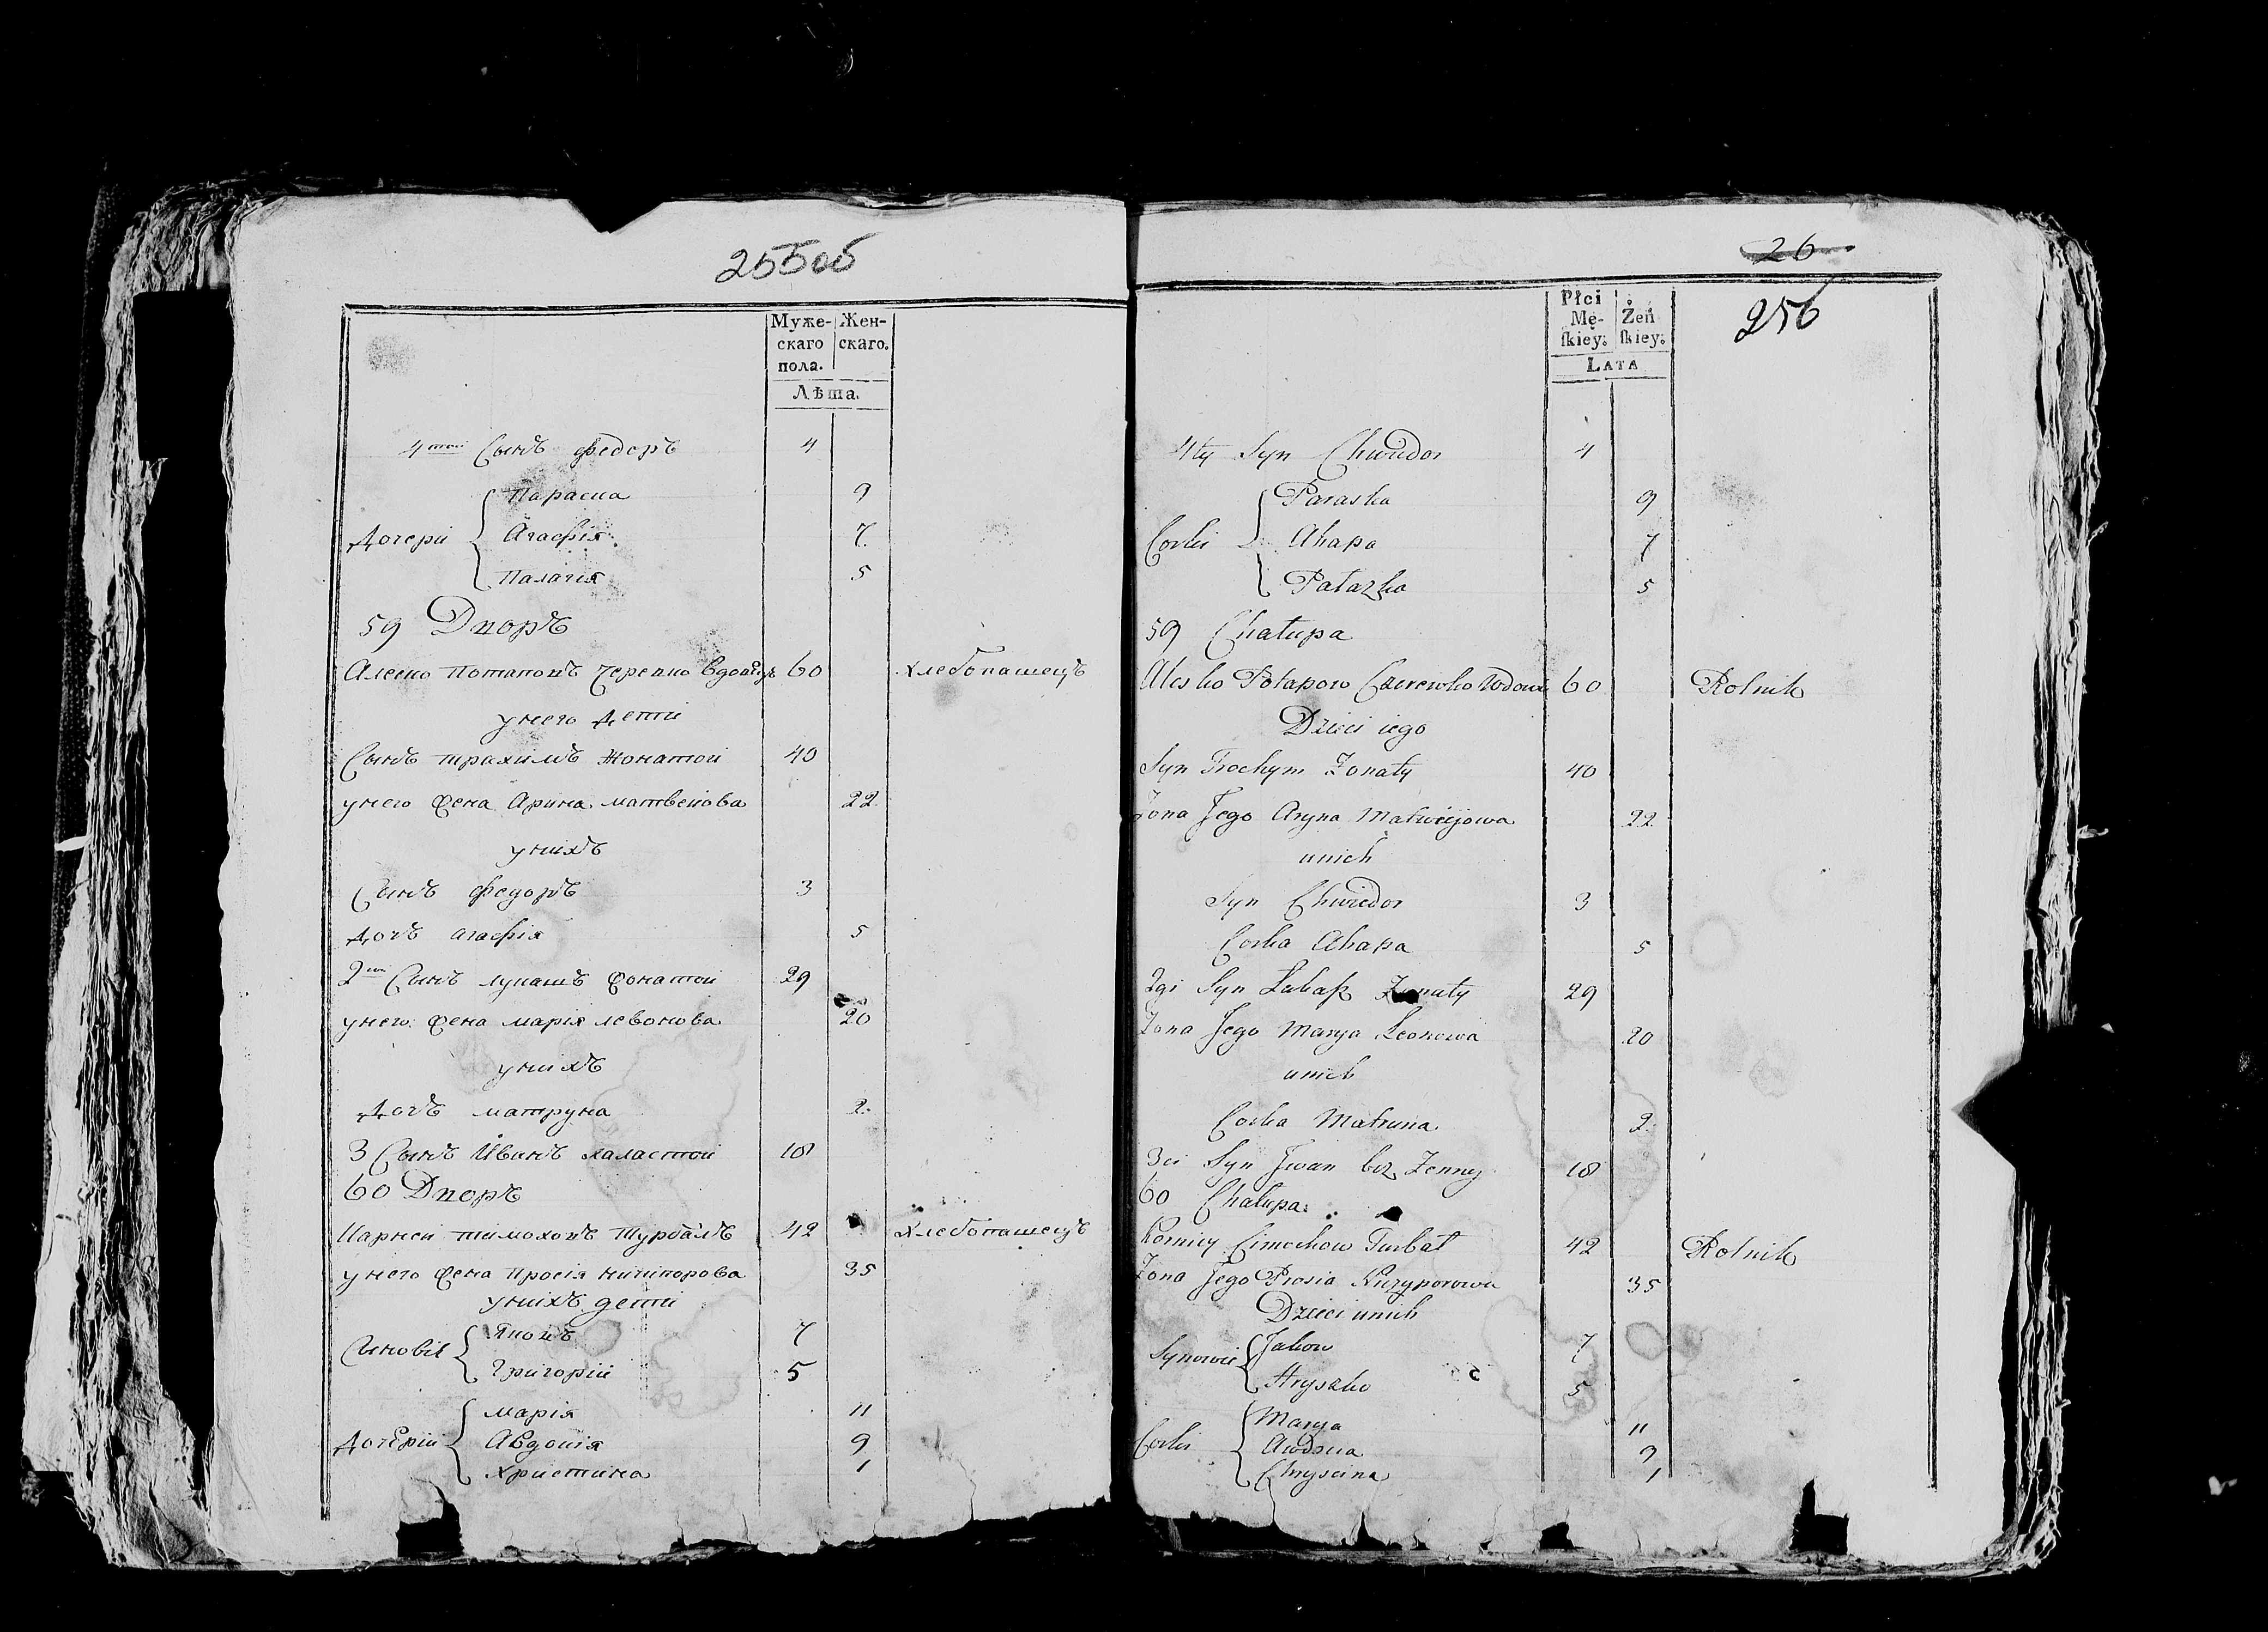 255об
Муже- Жен-
скаго скаго.
пола.
Лѣта.
4той Сынъ Федоръ 4
Параска 9
Дочери Агафія 7
Палагія 5
59 Дворъ
Алеско Потаповъ Черевко вдовецъ 60 хлебопашецъ
унего дети
Сынъ трахимъ жонатои 40
унего жена Арина матвеиова 22
унихъ
Сынъ Федоръ 3
дочъ агафія 5
2гои Сынъ лукашъ жонатои 29
унего жена марія левонова 20
унихъ
дочъ матруна 2
3 Сынъ Иванъ халастои 18
60 Дворъ
Карнеи тимохоvъ Турбалъ 42 хлебопашецъ
унего жена Просія никипорова 35
унихъ дети
Синовія Яковъ 7
Григории 5
марія 11
дочерии Авдокія 9
христина 1
26
256
Płci
Mę- Żeń
ſkiey: ſkiey:
LATA
4ty Syn Chwiedor 4
Paraska 9
Corki Ahapa 7
Pałazka 5
59 Chałupa
Alesko Potapow Czerewko Wdowi 60 Rolnik
Dzieci iego
Syn Trochym Żonaty 40
Żona Jego Aryna Matwiejowa 22
unich
Syn Chwiedor 3
Corka Ahapa 5
2gi Syn Łukaſz Żonaty 29
Żona Jego Marya Leonowa 20
unich
Corka Matruna 2
3ci Syn Jwan bez Żenny 18
60 Chałupa
Korniey Cimochow Turbał 42 Rolnik
Żona Jego Prosia Niczyporowa 35
Dzieci unich
Synowie Jakow 7
Hryszko 5
Marya 11
Corki Awdocia 9
Chryscina 1